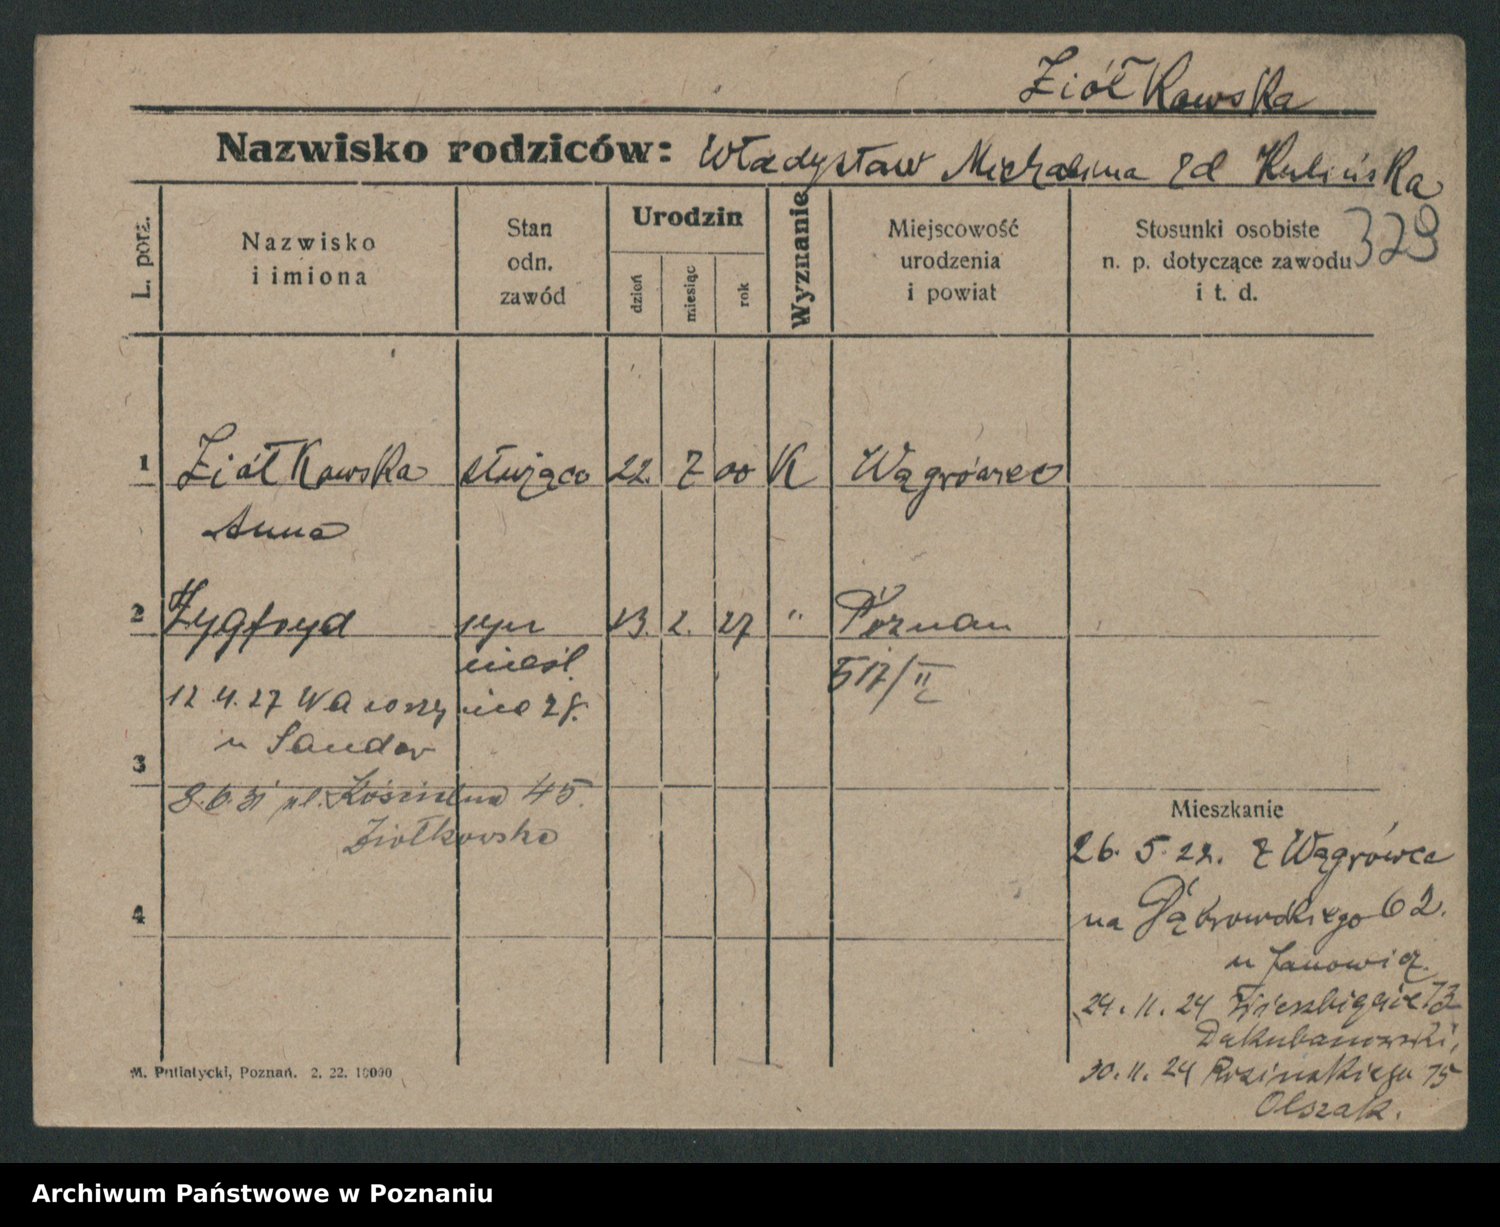 Ziółkowska
Nazwisko rodziców: Władysław Michalina zd Kulińska
379
L. porz.
Nazwisko
i imiona
Stan
odn.
zawód
Urodzin
dzień
miesiąc
rok
Wyznanie
Miejscowość
urodzenia
i powiat
Stosunki osobiste
n. p. dotyczące zawodu
i t. d.
1 Ziółkowska służąca 22. 7 00 K Wągrówiec
Anna
2 Zygfryd syn 13. 2. 27 " Poznań
nieśl. 517/II
12.4.27
u Sandor
3
8.6.31 ul. Kościelna 45.
Ziołkowska
4
Mieszkanie
26. 5. 22. z Wągrówca
na Dąbrowskiego 62.
u Janowicz
24. 11. 24 73
30. 11. 24 75
Olszak.
M. Putiatycki, Poznań. 2. 22. 10000
Archiwum Państwowe w Poznaniu